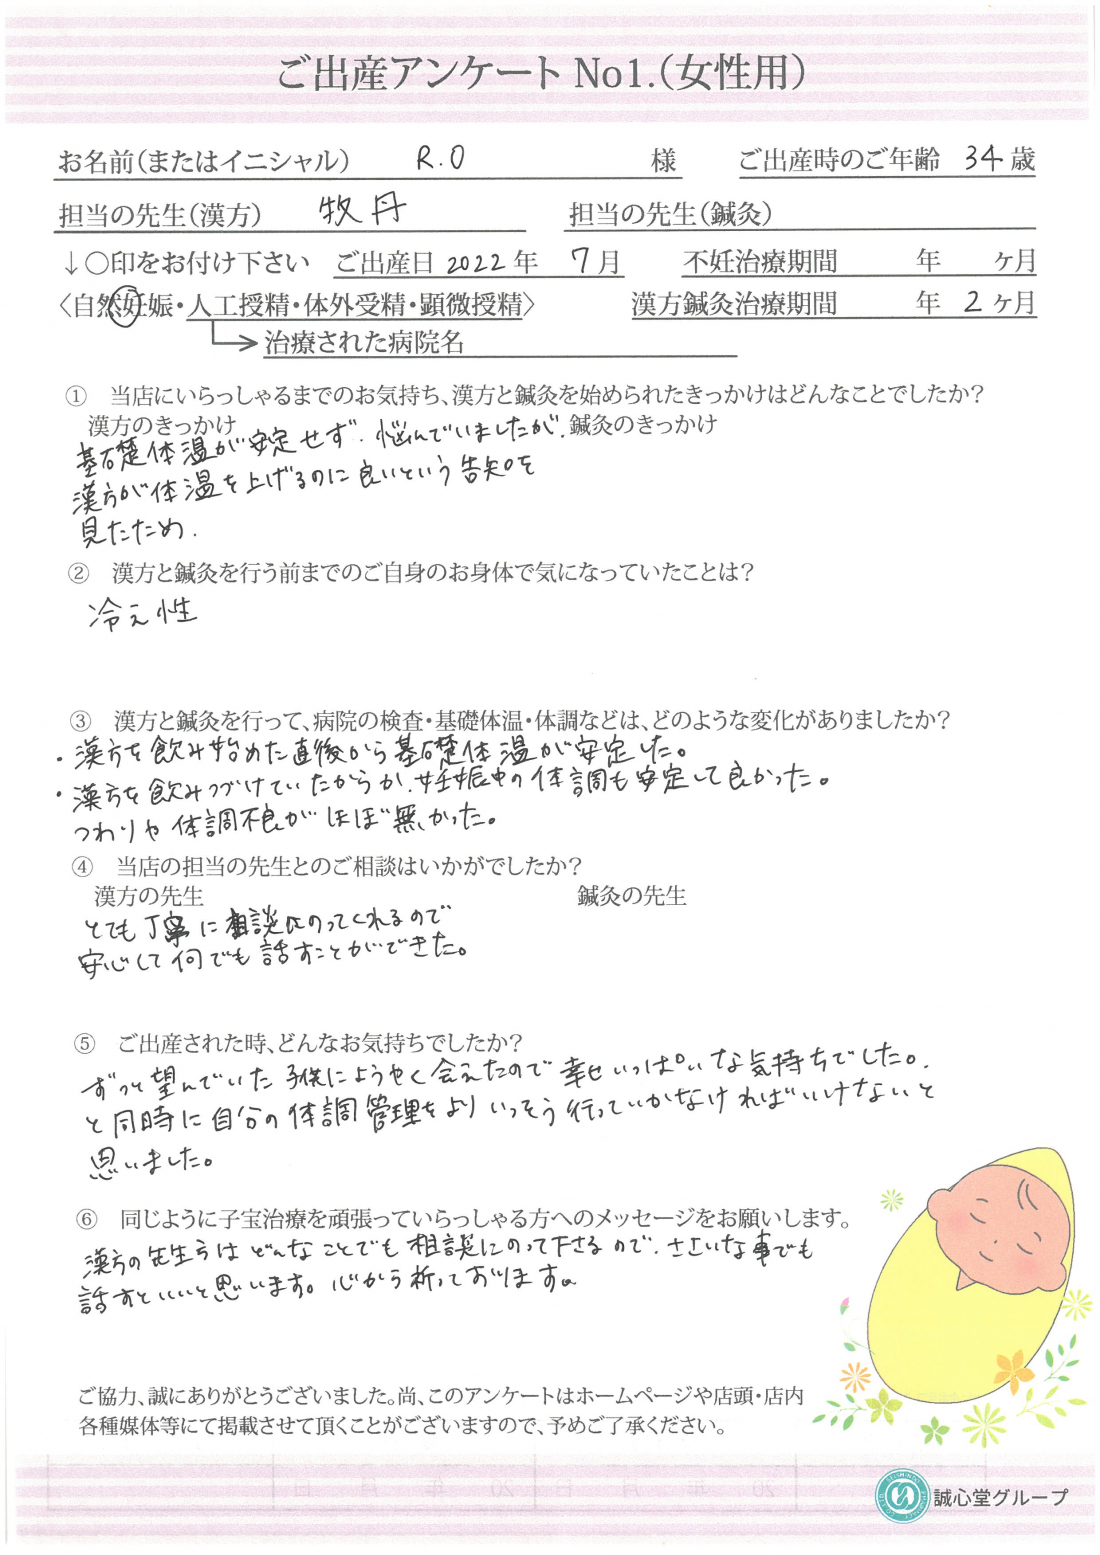 ご出産アンケート No1.(女性用)
お名前(またはイニシャル) R.O 様 ご出産時のご年齢 34歳
担当の先生(漢方) 牧丹 担当の先生(鍼灸)
↓○印をお付け下さい ご出産日 2022年 7月 不妊治療期間 年 ヶ月
〈自然妊娠・人工授精・体外受精・顕微授精〉 漢方鍼灸治療期間 年 2ヶ月
治療された病院名
① 当店にいらっしゃるまでのお気持ち、漢方と鍼灸を始められたきっかけはどんなことでしたか?
漢方のきっかけ 鍼灸のきっかけ
基礎体温が安定せず、悩んでいましたが、
漢方が体温を上げるのに良いという告知を
見たため.
② 漢方と鍼灸を行う前までのご自身のお身体で気になっていたことは?
冷え性
③ 漢方と鍼灸を行って、病院の検査・基礎体温・体調などは、どのような変化がありましたか?
・漢方を飲み始めた直後から基礎体温が安定した。
・漢方を飲みつづけていたからか、妊娠中の体調も安定して良かった。
つわりや体調不良がほぼ無かった。
④ 当店の担当の先生とのご相談はいかがでしたか?
漢方の先生 鍼灸の先生
とても丁寧に相談にのってくれるので
安心して何でも話すことができた。
⑤ ご出産された時、どんなお気持ちでしたか?
ずっと望んでいた子供にようやく会えたので幸せいっぱいな気持ちでした。
と同時に自分の体調管理をよりいっそう行っていかなければいけないと
思いました。
⑥ 同じように子宝治療を頑張っていらっしゃる方へのメッセージをお願いします。
漢方の先生方はどんなことでも相談にのって下さるので、ささいな事でも
話すといいと思います。心から祈っております。
ご協力、誠にありがとうございました。尚、このアンケートはホームページや店頭・店内
各種媒体等にて掲載させて頂くことがございますので、予めご了承ください。
誠心堂グループ